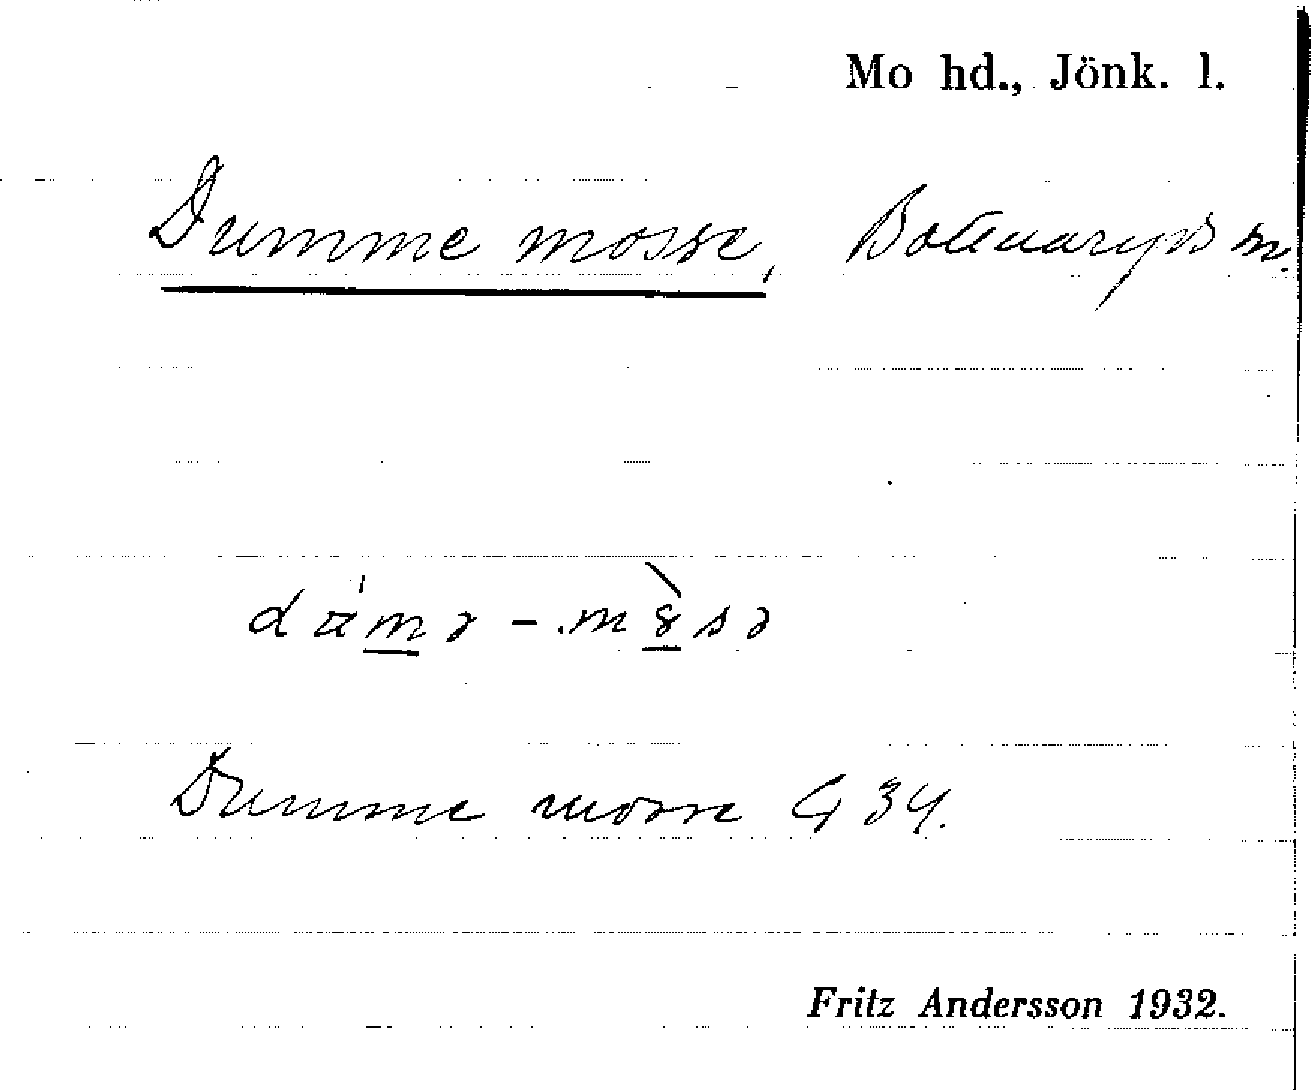 Mo hd., Jönk. l.
Dumme mosse, Bottnaryds sn.
Dumme mosse G 34.
Fritz Andersson 1932.